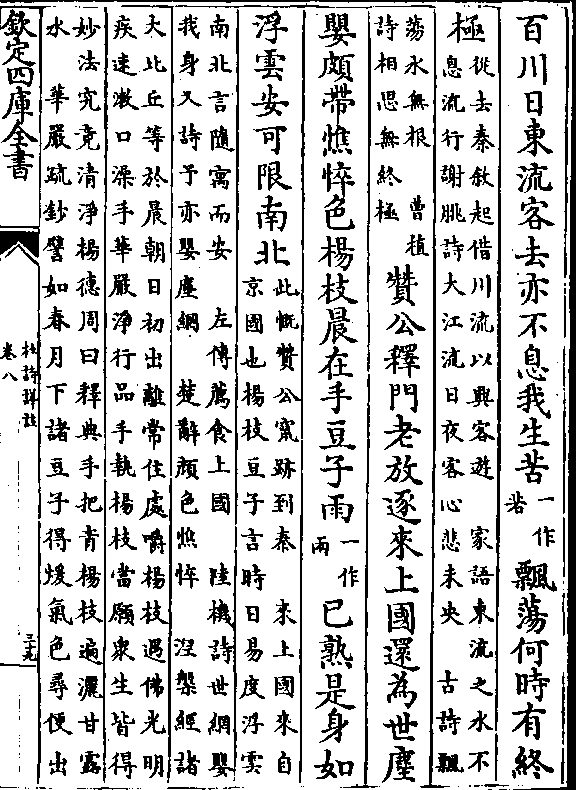 百川日東流客去亦不息我生苦一作若飄蕩何時有終
極從去秦敘起借川流以興客遊 家語東流之水不
息流行謝朓詩大江流日夜客心悲未央 古詩飄
蕩水無根 曹植
詩相思無終極
贊公釋門老放逐來上國還為世塵
嬰頗帶憔悴色楊枝晨在手豆子雨一作兩已熟是身如
浮雲安可限南北此慨贊公竄跡到秦 來上國來自
京國也楊枝豆子言時日易度浮雲
南北言隨寓而安 左傳薦食上國 陸機詩世網嬰
我身又詩予亦嬰塵網 楚辭顔色憔悴 涅槃經諸
大比丘等於晨朝日初出離常住處嚼楊枝遇佛光明
疾速漱口澡手華嚴淨行品手執楊枝當願衆生皆得
妙法究竟清淨楊德周曰釋典手把青楊枝遍灑甘露
水 華嚴疏鈔譬如春月下諸豆子得煖氣色尋便出
欽定四庫全書
杜詩詳註
卷八
三九